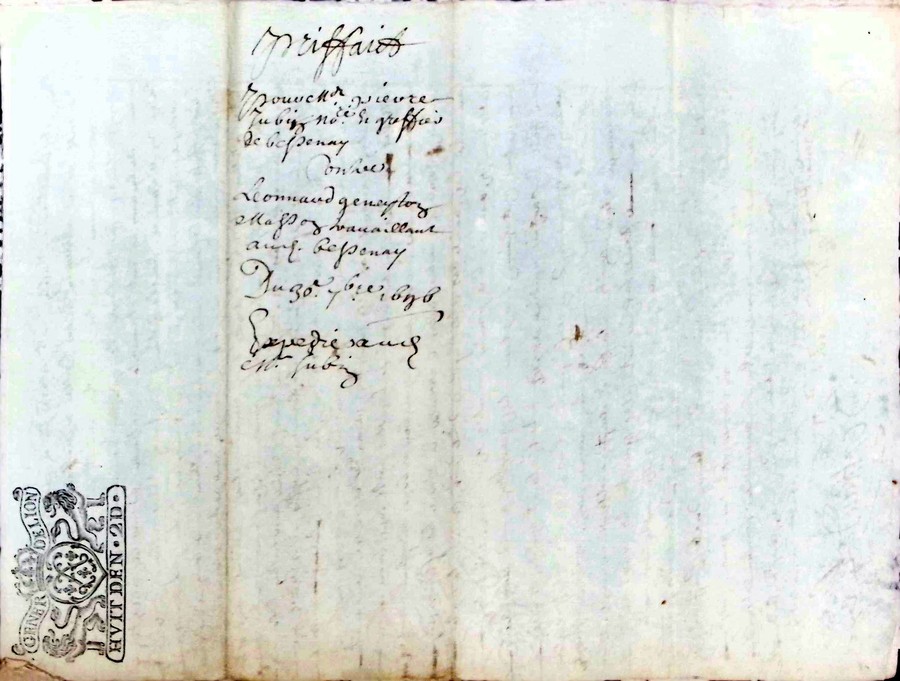 Priffaict
Pour Mr. pierre
Jubin no.re & greffier
de bessenay
Contre
Leonnard geneyton
Masson travaillant
aud. bessenay
Du 30e. 7bre. 1696
Expedié aud
Mr. Jubin
GENER DE LION
HVIT DEN • 2D •